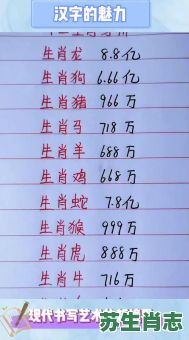 汉字的魅力
十二生肖身价
生肖龙 8.8亿
生肖狗 6.66亿
生肖猪 966万
生肖马 718万
生肖羊 688万
生肖鸡 668万
生肖蛇 7.8亿
生肖猴 999万
生肖虎 888万
生肖牛 716万
现代书写艺术
苏生肖志